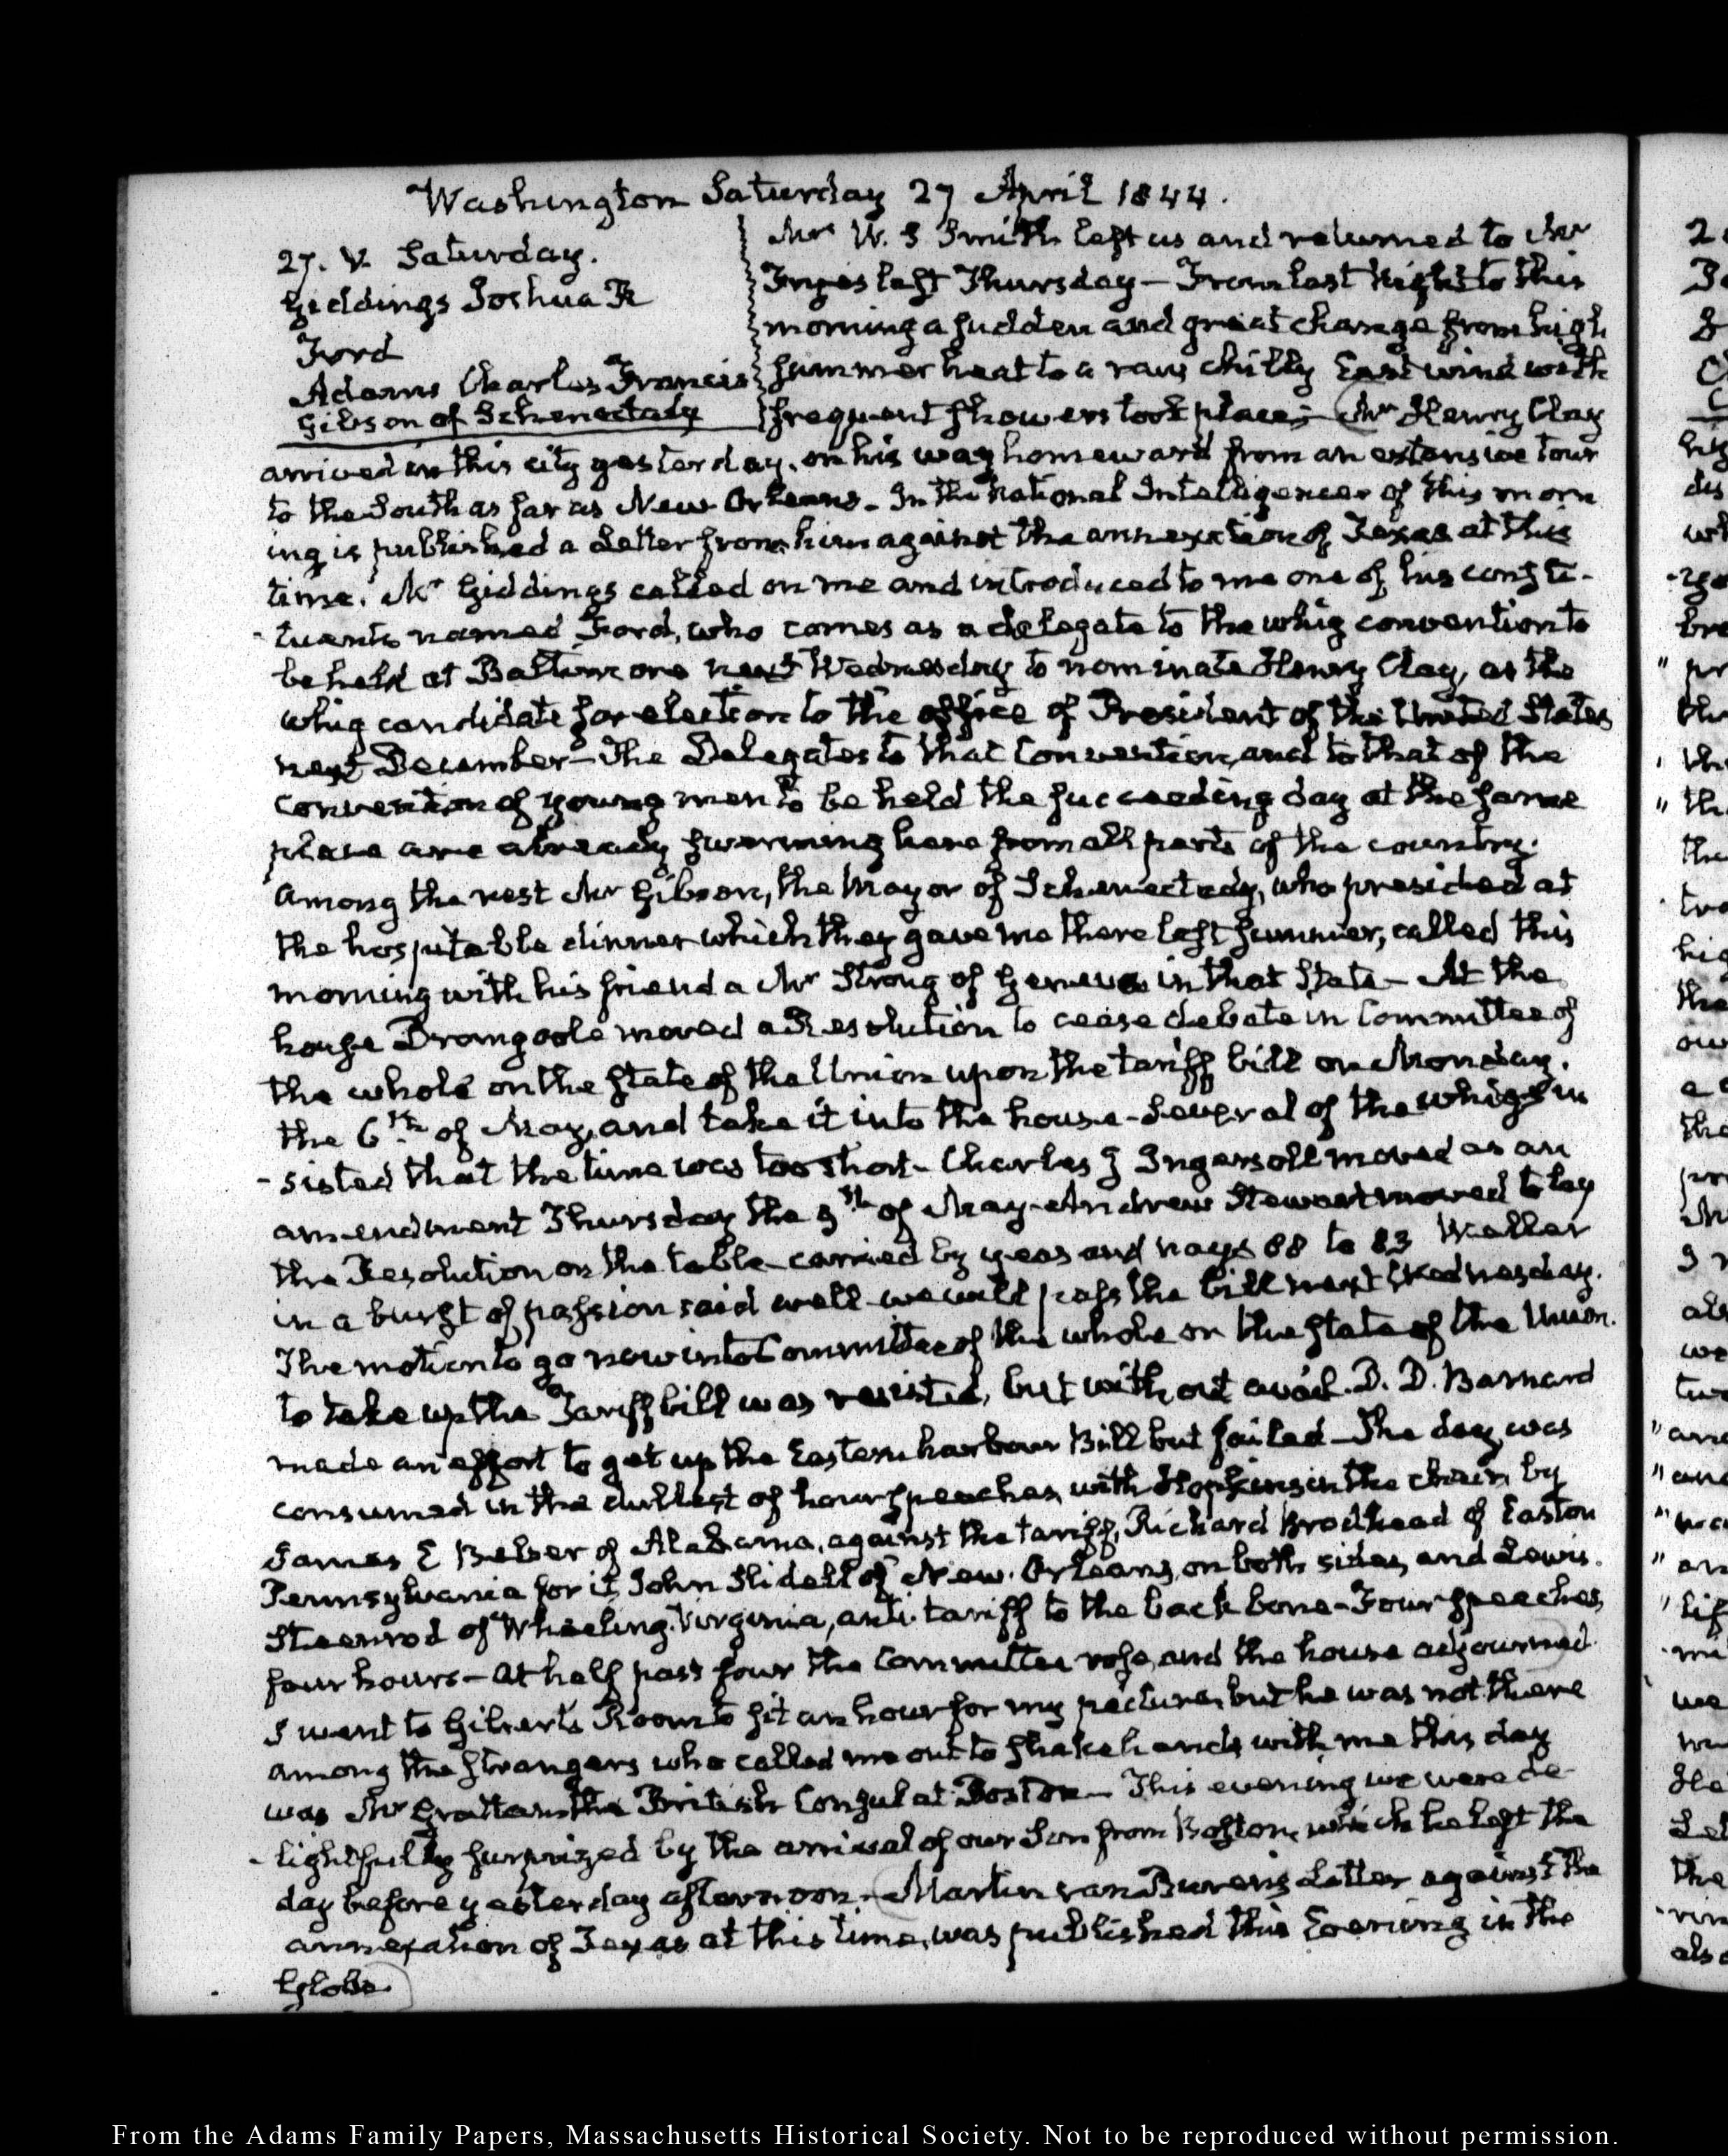 Washington Saturday 27 April 1844.
27. V. Saturday.
Giddings Joshua R
Ford
Adams Charles Francis
Gibson of Schenectady
Mrs W. S Smith left us and returned to Mr
Fryes last Thursday — From last night to this
morning a sudden and great change from high
summer heat to a raw chilly East wind with
frequent showers took place; — Mr Henry Clay
arrived in this city yesterday, on his way homeward from an extensive tour
to the South as far as New Orleans. In the National Intelligencer of this morn
ing is published a Letter from him against the annexation of Texas at this
time. Mr Giddings called on me and introduced to me one of his consti-
-tuents named Ford, who comes as a delegate to the whig convention to
be held at Baltimore next Wednesday to nominate Henry Clay, as the
whig candidate for election to the office of President of the United States
next December — The Delegates to that Convention, and to that of the
convention of young men to be held the succeeding day at the same
place are already swarming here from all parts of the country.
Among the rest Mr Gibson, the Mayor of Schenectady, who presided at
the hospitable dinner which they gave me there last summer, called this
morning with his friend a Mr Strong of Geneva in that State — At the
house Dromgoole moved a Resolution to cease debate in Committee of
the whole on the state of the Union upon the tariff bill on Monday.
the 6th of May, and take it into the house — Several of the whigs in
-sisted that the time was too short — Charles J Ingersoll moved as an
amendment Thursday the 9th of May — Andrew Stewart moved to lay
the Resolution on the table — carried by yeas and nays 88 to 83 Weller
in a burst of passion said well we will pass the bill next Wednesday.
The motion to go now into Committee of the whole on the state of the Union.
to take up the Tariff bill was resisted, but without avail. D. D. Barnard
made an effort to get up the Eastern harbour Bill but failed — The day was
consumed in the dullest of hour speeches, with Hopkins in the chair, by
James E Belser of Alabama, against the tariff, Richard Brodhead of Easton
Pennsylvania for it, John Slidell of New. Orleans, on both sides, and Lewis.
Steenrod of Wheeling. Virginia, anti-tariff to the back bone — Four speeches,
four hours — At half past four the Committee rose, and the house adjourned.
I went to Gilbert's Room to sit an hour for my picture, but he was not there
Among the strangers who called me out to shake hands with me this day
was Mr Grattan the British Consul at Boston — This evening we were de-
-lightfully surprized by the arrival of our Son from Boston, which he left the
day before yesterday afternoon. — Martin van Buren's Letter against the
annexation of Texas at this time, was published this Evening in the
Globe.
From the Adams Family Papers, Massachusetts Historical Society. Not to be reproduced without permission.